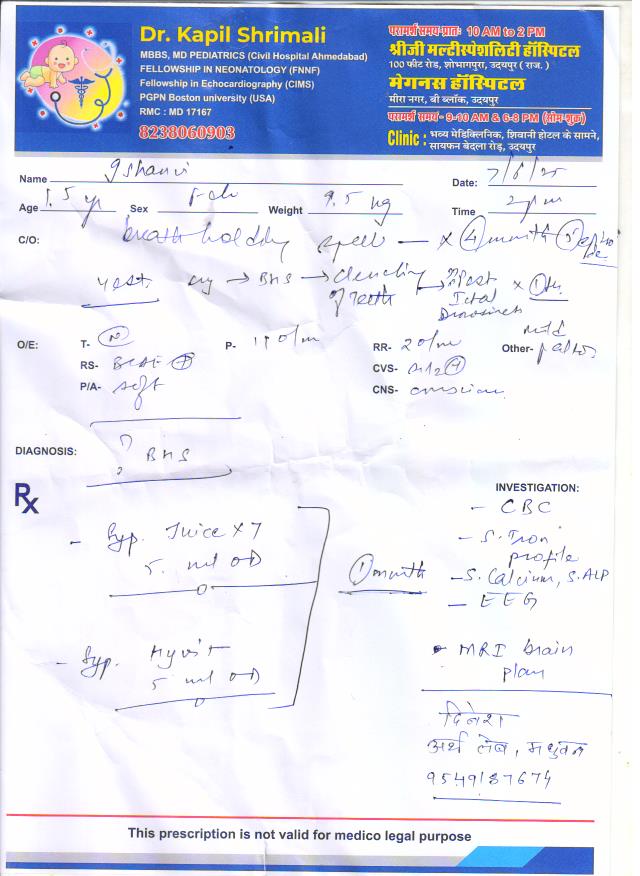 Dr. Kapil Shrimali
MBBS, MD PEDIATRICS (Civil Hospital Ahmedabad)
FELLOWSHIP IN NEONATOLOGY (FNNF)
Fellowship in Echocardiography (CIMS)
PGPN Boston university (USA)
RMC : MD 17167
8238060903
परामर्श समय-प्रातः 10 AM to 2 PM
श्रीजी मल्टीस्पेशलिटी हॉस्पिटल
100 फीट रोड, शोभागपुरा, उदयपुर ( राज. )
मेगनस हॉस्पिटल
मीरा नगर, बी ब्लॉक, उदयपुर
परामर्श समय - 9-10 AM & 6-8 PM (सोम-शुक्र)
Clinic : भव्य मेडिक्लिनिक, शिवानी होटल के सामने,
सायफन बेदला रोड़, उदयपुर
Name Ishanvi Date: 7/8/25
Age 1.5 yr Sex Weight 9.5 kg Time 2 pm
C/O: breath holding spell — x 4 month
yest. cry → BHS → clenching of teeth →
O/E: T- N P- 110/m RR- 20/m Other- mild pallor
RS- CVS-
P/A- soft CNS- conscious
DIAGNOSIS: ? BHS
Rx
INVESTIGATION:
- CBC
- S. Iron profile
- S. Calcium, S. ALP
- EEG
• MRI brain plan
- Syp. 5 ml OD
1 month
- Syp. 5 ml OD
दिनेश
अर्थ लेब, मधुवन
9549187674
This prescription is not valid for medico legal purpose